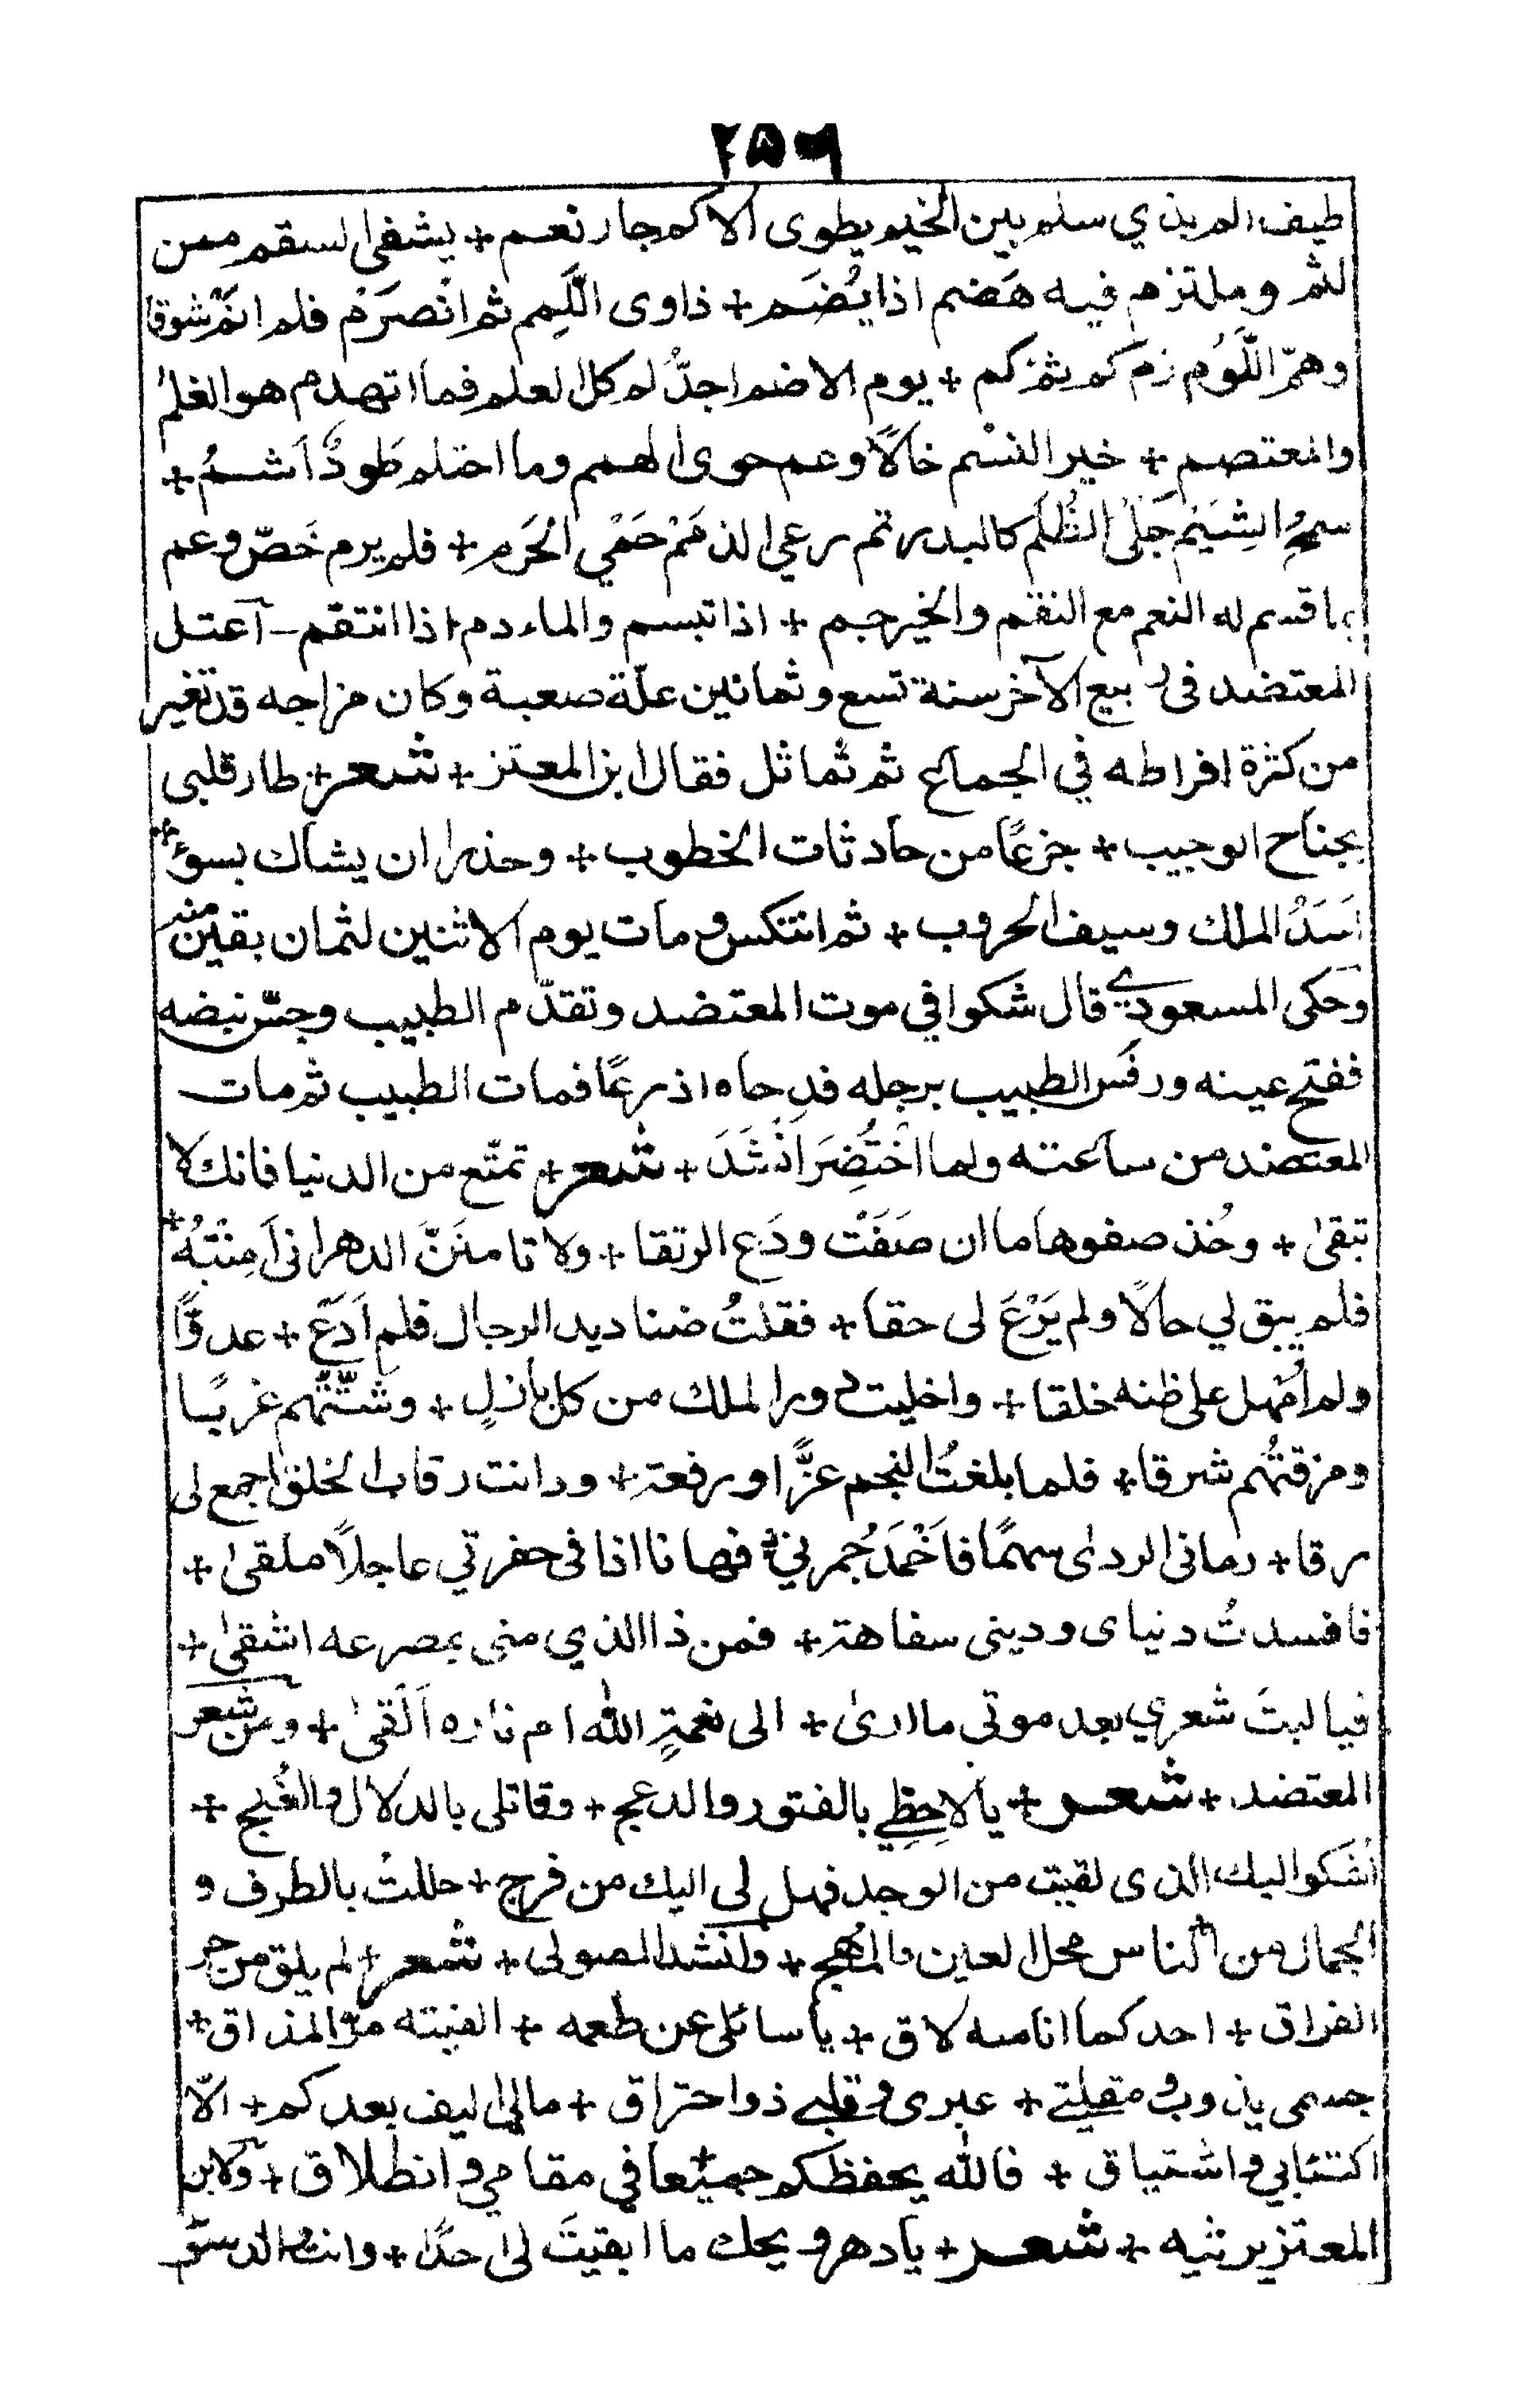 ۲۵۶
طيف الم بذي سلم بين الخيم يطوى الاكم جار نعم + يشفى السقم ممن
لثم وملتزم فيه هَضم اذا يُضَم + ذاوى اللَّمم ثم انْصرَمْ فلم انَمْ شوقا
وهمّ اللَّوُم زم كم ثم كم + يوم الاضم اجدُّ لم كل العلم فما اتهدم هو العلمُ
والمعتصم + خير النسْم خالًا وعم حوى الهمم وما احتلم طَودٌ اَشمُ +
سمحُ الشِيَم جَلىّ الظُلَم كالبدر تم رعي الذمَمْ حَمْي الحَرم + فلم يرم خَصّ وعم
بما قسم له النعم مع النقم والخير جم + اذا تبسم والماء دم اذا انتقم - آعتل
المعتضد فى ربيع الآخر سنة تسع وثمانين علّة صعبة وكان مزاجه قد تغير
من كثرة افراطه في الجماع ثم تماثل فقال ابن المعتز + شعر + طار قلبى
بجناح الوجيب + جزعًا من حادثات الخطوب + وحذرا ان يشاك بسوءٍ +
اَسَدُ الملك وسيف الحروب + ثم انتكس ومات يوم الاثنين لثمان بقين منه
وحكى المسعودي قال شكوا في موت المعتضد وتقدّم الطبيب وجسّ نبضه
ففتح عينه ورفس الطبيب برجله فدحاه اذرعًا فمات الطبيب ثم مات
المعتضد من ساعته ولما احْتُضِرَ اَنْشَدَ + شعر + تمتّع من الدنيا فانك لا
تبقىٰ + وخُذ صفوها ما ان صَفَتْ ودَع الرتقا + ولا تامنَنَّ الدهر انى اَمِنتُهٗ +
فلم يبق لي حالًا ولم يَرْعَ لى حقا + فقلتُ صناديد الرجال فلم اَدَع + عدوًّا
ولم اُمهل على ظنه خلقا + واخليت دور الملك من كل بازلٍ + وشتّتُّهم غربًا
ومزقتُهم شرقا + فلما بلغتُ النجم عزًّا ورفعةً + ودانت رقاب الخلق اجمع لى
رقا + رمانى الردى سهمًا فاَخْمَدَ جُمرتي فها نا اذا فى حفرتي عاجلًا ملقىٰ +
فافسدتُ دنياى ودينى سفاهةً + فمن ذا الذي منى بمصرعه اشقىٰ +
فيا ليتَ شعري بعد موتى ما ارىٰ + الى نعمةٍ الله ام ناره اَلقىٰ + ومن شعر
المعتضد + شعر + يا لاحِظِي بالفتور والدعج + وقاتلى بالدلال والغُنج +
اَشكو اليك الذى لقيت من الوجد فهل لى اليك من فرج + حللتُ بالطرف و
الجمال من الناس محل العين والمُهج + وانشد الصولى + شعر + لم يلق من حر
الفراق + احد كما انا منه لاق + يا سائلى عن طعمه + الفيته مُرّ المذاق +
جسمى يذوب ومقلتے + عبرى وقلبے ذو احتراق + مالى اليف بعدكم + الّا
اكتئابي واشتياق + فالله يحفظكم جميعا في مقامي وانطلاق + ولابن
المعتز يرثيه + شعر + يا دهر ويحك ما ابقيتَ لى احدًا + وانت الد سؤ